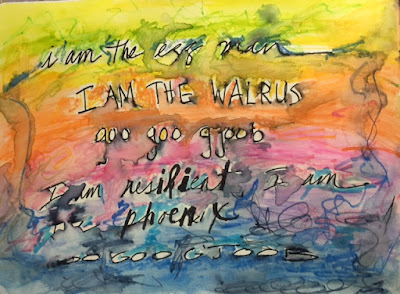 i am the egg man
I AM THE WALRUS
goo goo gjoob
I am resilient, I am
phoenix
GOO GJOOB